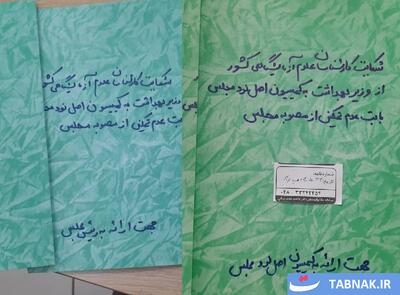 شکایت کارشناسان علوم آزمایشگاهی کشور
از وزیر بهداشت به کمیسیون اصل نود مجلس
بابت عدم تمکین از مصوبه مجلس
۰۲۸ - ۳۳۲۴۲۴۵۲
جهت ارائه به کمیسیون اصل نود مجلس
شکایت کارشناسان علوم آزمایشگاهی کشور
وزیر بهداشت به کمیسیون اصل نود
بابت عدم تمکین از مصوبه مجلس
جهت ارائه به رئیس مجلس
TABNAK.IR